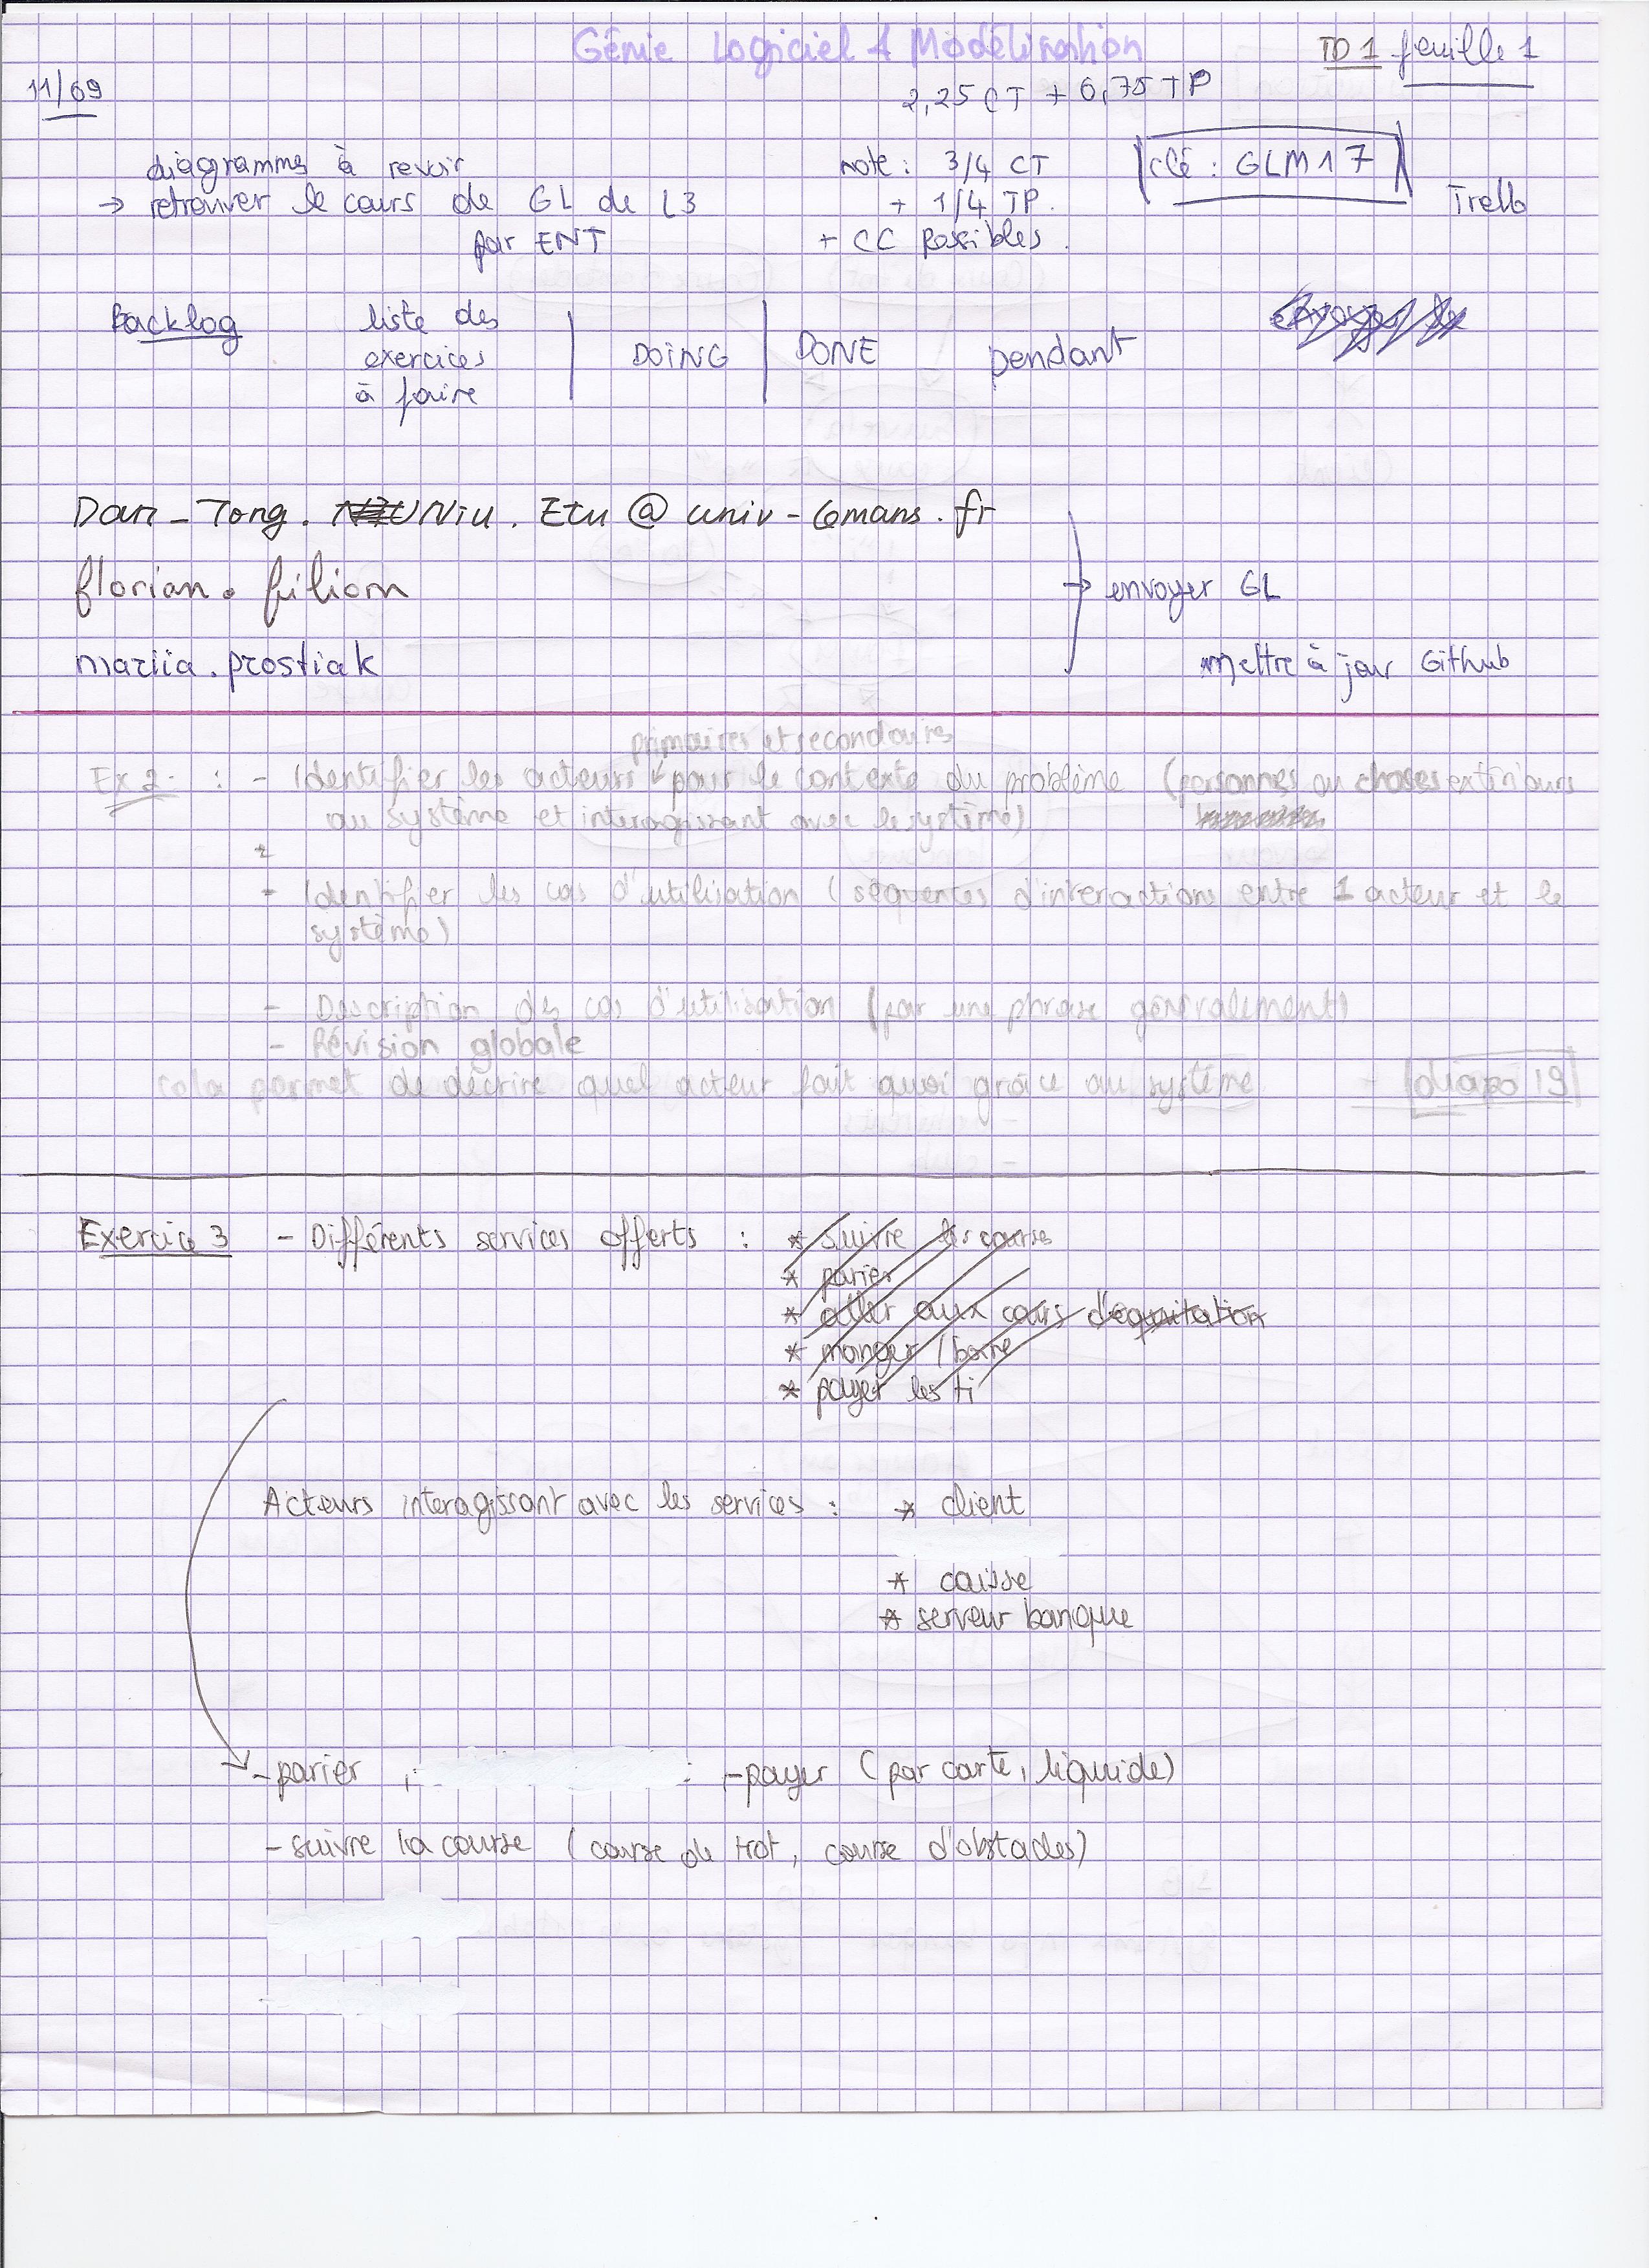 Génie Logiciel & Modélisation
TD 1 feuille 1
11/09
2,25 CT + 0,75 TP
diagrammes à revoir
→ retrouver le cours de GL de L3
par ENT
note : 3/4 CT
+ 1/4 TP.
+ CC possibles.
clé : GLM17
Trello
Backlog
liste des
exercices
à faire
DOING
DONE
pendant
Dan-Tong.NIU.Etu@univ-lemans.fr
florian.filion
mariia.prostiak
→ envoyer GL
mettre à jour Github
primaires et secondaires
Ex 2 : - Identifier les acteurs pour le contexte du problème (personnes ou choses extérieurs
au système et interagissant avec le système)
- Identifier les cas d'utilisation (séquences d'interactions entre 1 acteur et le
système)
- Description des cas d'utilisation (par une phrase généralement)
- Révision globale
cela permet de décrire quel acteur fait quoi grâce au système - diapo 19
Exercice 3 - Différents services offerts : * suivre les courses
* parier
* aller aux cours d'équitation
* manger / boire
* payer les ti
Acteurs interagissant avec les services : * client
* caisse
* serveur banque
- parier , : - payer (par carte, liquide)
- suivre la course (course de trot, course d'obstacles)